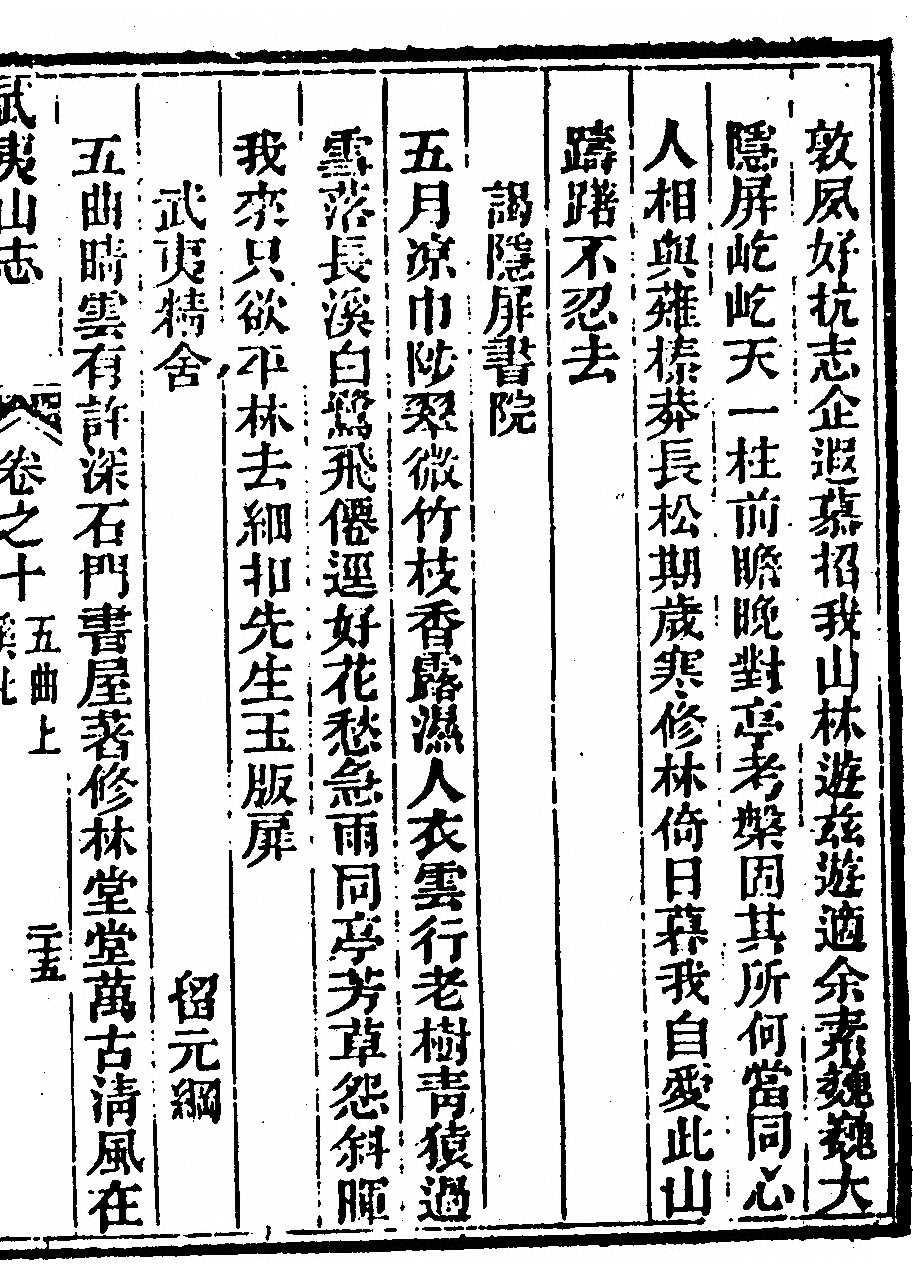 敦夙好抗志企遐慕招我山林遊兹遊適余素巍巍大
隱屏屹屹天一柱前瞻晚對亭考槃固其所何當同心
人相與薙榛莽長松期歲寒修林倚日暮我自愛此山
躊躇不忍去
謁隱屏書院
五月凉巾陟翠微竹枝香露濕人衣雲行老樹靑猿過
雪落長溪白鷺飛僊逕好花愁急雨同亭芳草怨斜暉
我來只欲平林去細扣先生玉版扉
武夷精舍 留元綱
五曲晴雲有許深石門書屋著修林堂堂萬古淸風在
武夷山志 卷之十 五曲上 二十五
溪北